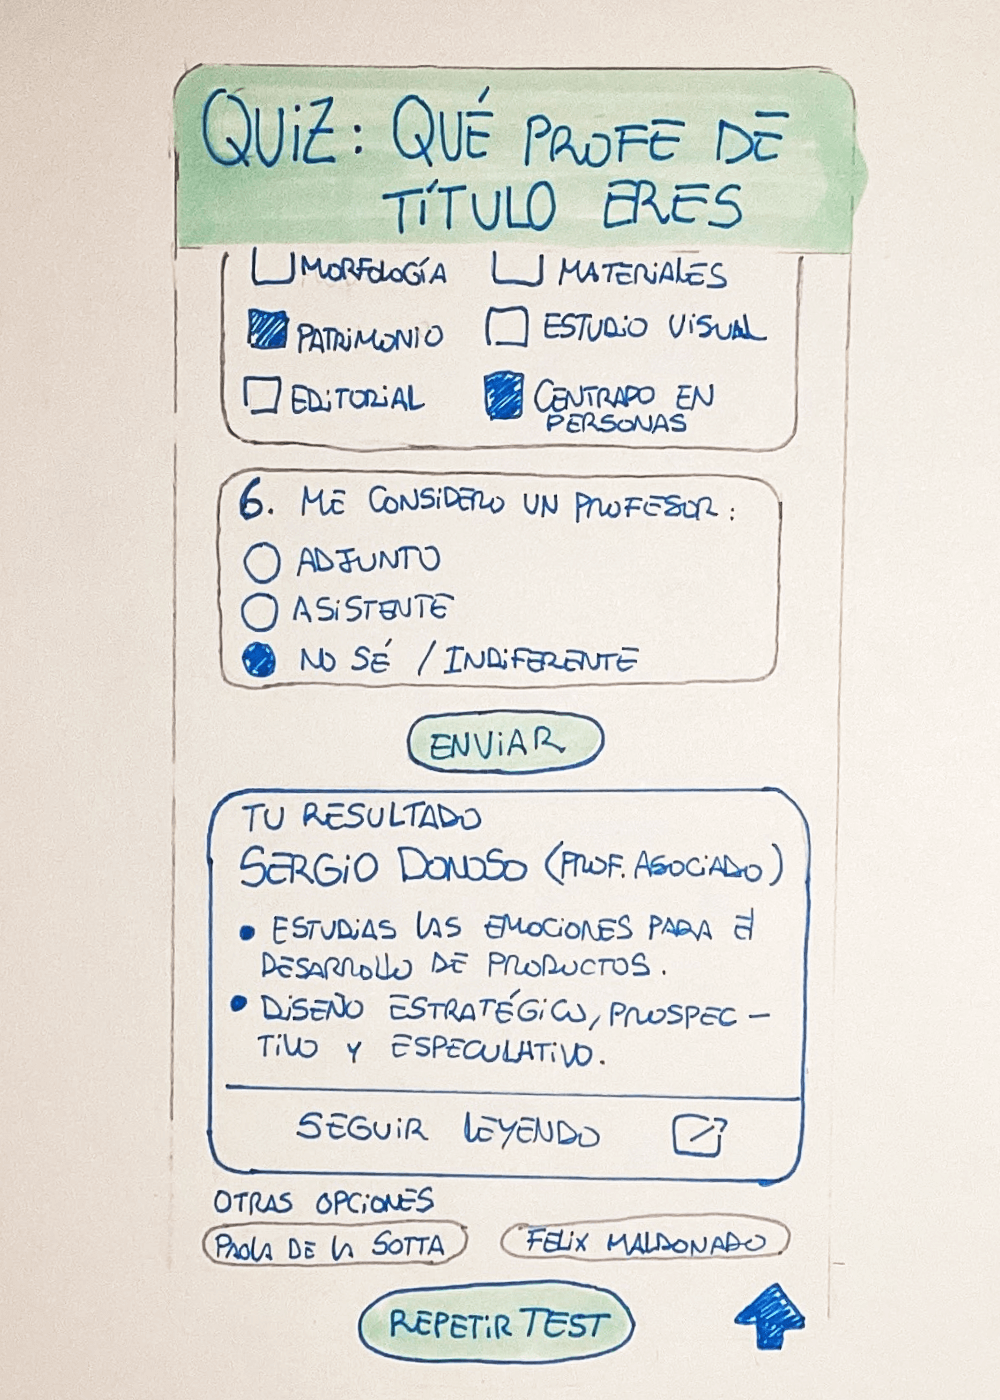 QUIZ: QUÉ PROFE DE
TÍTULO ERES
MORFOLOGÍA
MATERIALES
PATRIMONIO
ESTUDIO VISUAL
EDITORIAL
CENTRADO EN
PERSONAS
6. ME CONSIDERO UN PROFESOR:
ADJUNTO
ASISTENTE
NO SÉ / INDIFERENTE
ENVIAR
TU RESULTADO
SERGIO DONOSO (PROF. ASOCIADO)
• ESTUDIAS LAS EMOCIONES PARA El
DESARROLLO DE PRODUCTOS.
• DISEÑO ESTRATÉGICO, PROSPEC-
TIVO Y ESPECULATIVO.
SEGUIR LEYENDO
OTRAS OPCIONES
PAOLA DE LA SOTTA
FELIX MALDONADO
REPETIR TEST